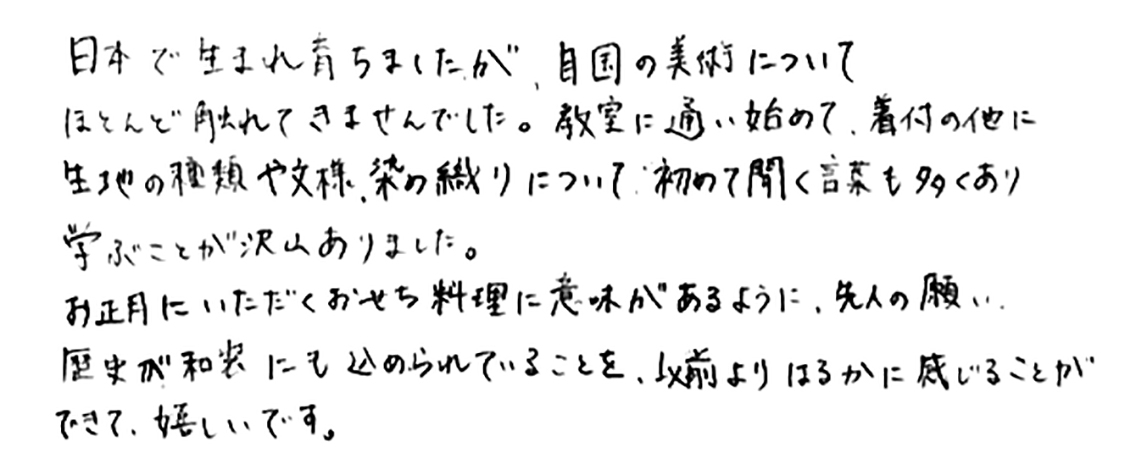 日本で生まれ育ちましたが、自国の美術について
ほとんど触れてきませんでした。教室に通い始めて、着付の他に
生地の種類や文様、染め織りについて、初めて聞く言葉も多くあり
学ぶことが沢山ありました。
お正月にいただくおせち料理に意味があるように、先人の願い、
歴史が和装にも込められていることを、以前よりはるかに感じることが
できて、嬉しいです。